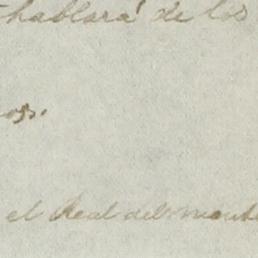 hablará de los
os.
el Real del monte